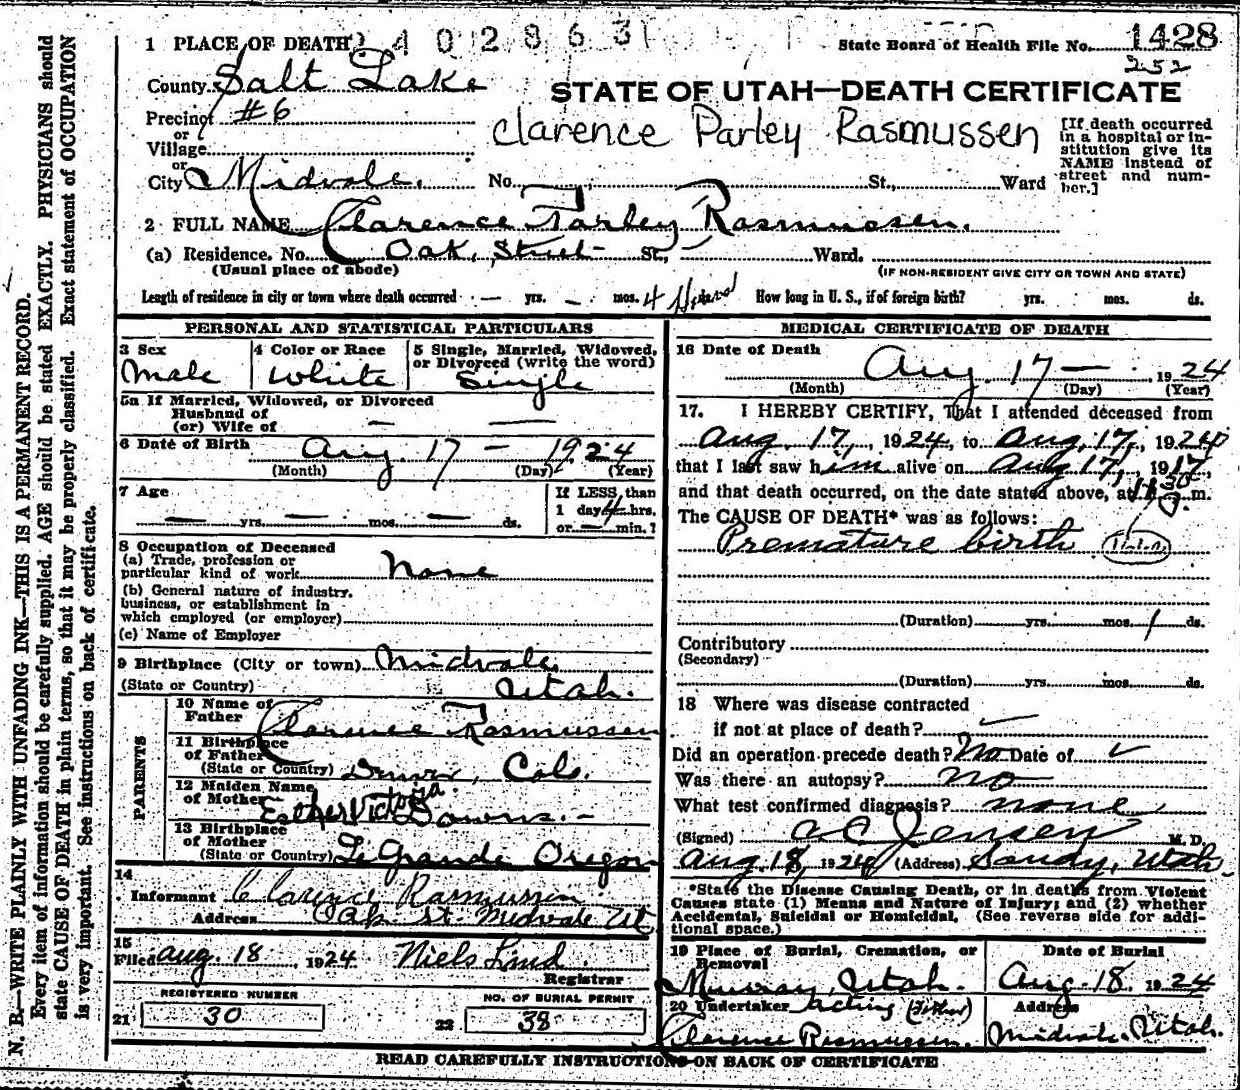 N. B.—WRITE PLAINLY WITH UNFADING INK—THIS IS A PERMANENT RECORD.
Every item of information should be carefully supplied. AGE should be stated EXACTLY. PHYSICIANS should
state CAUSE OF DEATH in plain terms, so that it may be properly classified. Exact statement of OCCUPATION
is very important. See instructions on back of certificate.
2402863
State Board of Health File No. 1428
252
1 PLACE OF DEATH
County Salt Lake
STATE OF UTAH—DEATH CERTIFICATE
Precinct #6
or
Village
or
City Midvale.
Clarence Parley Rasmussen
[If death occurred
in a hospital or in-
stitution give its
NAME instead of
street and num-
ber.]
No. St., Ward
2 FULL NAME Clarence Parley Rasmussen.
(a) Residence. No. Oak, Street St., Ward.
(Usual place of abode)
(IF NON-RESIDENT GIVE CITY OR TOWN AND STATE)
Length of residence in city or town where death occurred — yrs. — mos. 4
How long in U. S., if of foreign birth? yrs. mos. ds.
PERSONAL AND STATISTICAL PARTICULARS
3 Sex
Male
4 Color or Race
White
5 Single, Married, Widowed,
or Divorced (write the word)
Single
5a If Married, Widowed, or Divorced
Husband of
(or) Wife of —
6 Date of Birth Aug. 17 — 1924
(Month) (Day) (Year)
7 Age
— yrs. — mos. — ds.
If LESS than
1 day 4 hrs.
or — min.?
8 Occupation of Deceased
(a) Trade, profession or
particular kind of work None
(b) General nature of industry.
business, or establishment in
which employed (or employer)
(c) Name of Employer
9 Birthplace (City or town) Midvale
(State or Country) Utah.
PARENTS
10 Name of
Father Clarence Rasmussen
11 Birthplace
of Father
(State or Country) Denver, Colo.
12 Maiden Name
of Mother Esther Victoria Downs.—
13 Birthplace
of Mother
(State or Country) La Grande Oregon
14
Informant Clarence Rasmussen
Address Oak St. Midvale Ut
15
Filed Aug. 18, 1924 Niels Lind
Registrar
REGISTERED NUMBER
21 30
NO. OF BURIAL PERMIT
22 38
MEDICAL CERTIFICATE OF DEATH
16 Date of Death
Aug. 17 — 1924
(Month) (Day) (Year)
17. I HEREBY CERTIFY, That I attended deceased from
Aug. 17, 1924 to Aug. 17, 1924
that I last saw him alive on Aug 17, 1917,
and that death occurred, on the date stated above, at m.
The CAUSE OF DEATH* was as follows:
Premature birth
(Duration) yrs. mos. 1 ds.
Contributory
(Secondary)
(Duration) yrs. mos. ds.
18 Where was disease contracted
if not at place of death?
Did an operation precede death? No Date of
Was there an autopsy? no
What test confirmed diagnosis? none
(Signed) A C Jensen M. D.
Aug. 18, 1924 (Address) Sandy, Utah.
*State the Disease Causing Death, or in deaths from Violent
Causes state (1) Means and Nature of Injury; and (2) whether
Accidental, Suicidal or Homicidal. (See reverse side for addi-
tional space.)
19 Place of Burial, Cremation, or
Removal
Murray, Utah.
Date of Burial
Aug. 18 1924
20 Undertaker acting (Father)
Clarence Rasmussen.
Address
Midvale. Utah.
READ CAREFULLY INSTRUCTIONS ON BACK OF CERTIFICATE